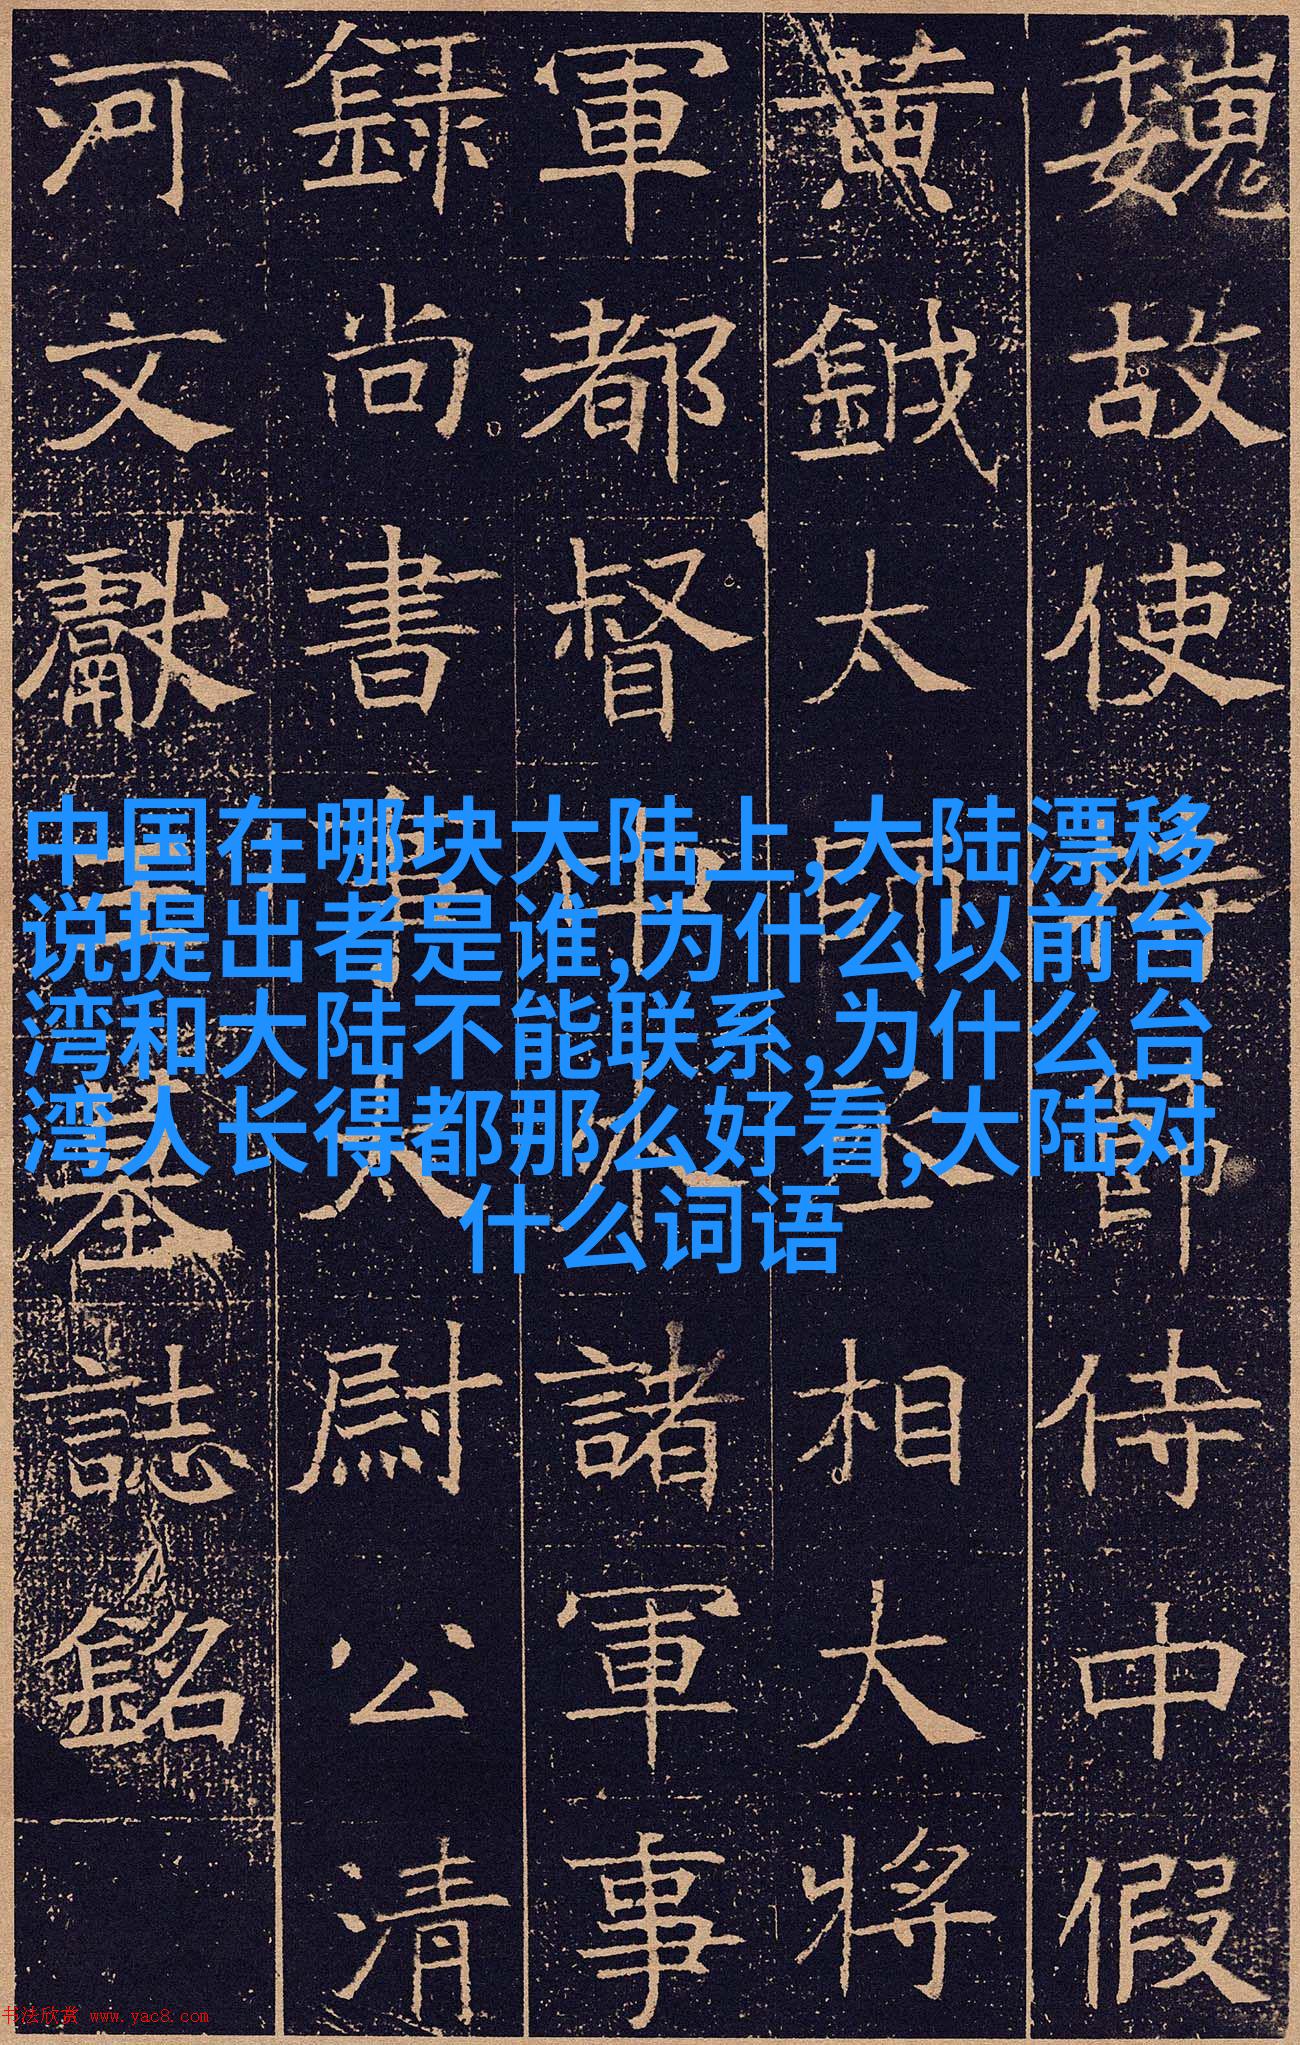 魏故使持節侍中假
黃鉞太丞相大將
軍都督中外諸軍事
録尚書事太尉公清
河文獻王墓誌銘
中国在哪块大陆上,大陆漂移
说提出者是谁,为什么以前台
湾和大陆不能联系,为什么台
湾人长得都那么好看,大陆对
什么词语
书法欣赏 www.yac8.com